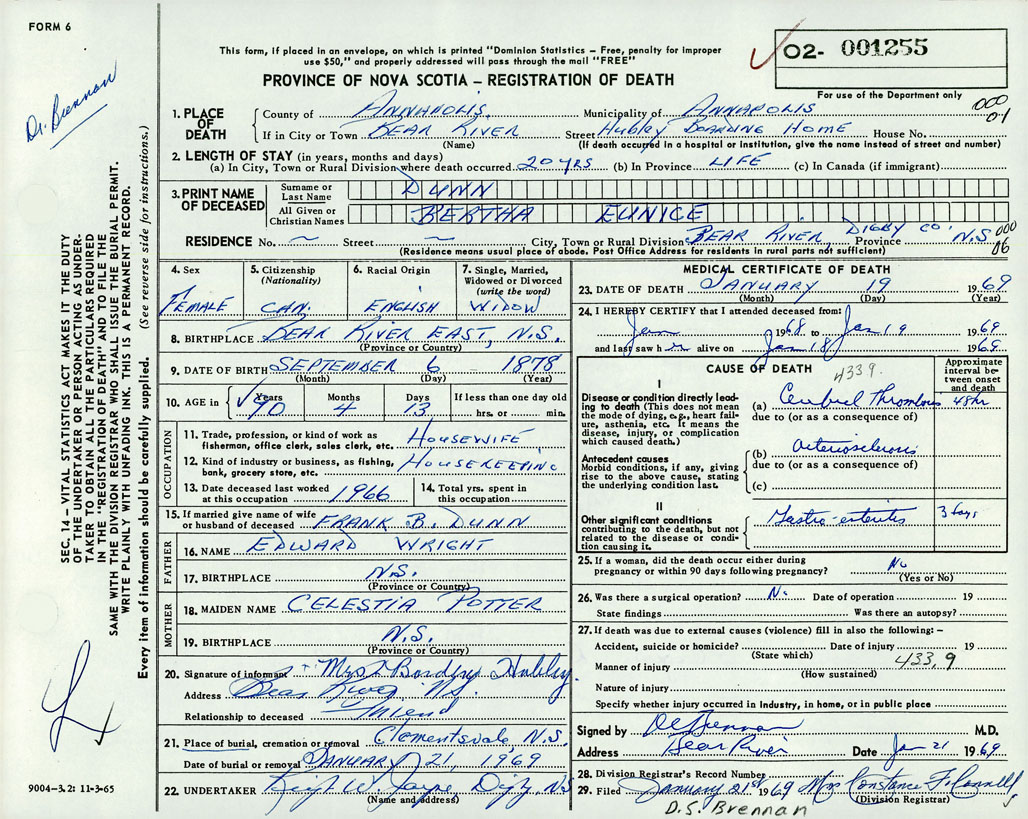 FORM 6
Dr. Brennan
SEC. 14 - VITAL STATISTICS ACT MAKES IT THE DUTY
OF THE UNDERTAKER OR PERSON ACTING AS UNDER-
TAKER TO OBTAIN ALL THE PARTICULARS REQUIRED
IN THE "REGISTRATION OF DEATH" AND TO FILE THE
SAME WITH THE DIVISION REGISTRAR WHO SHALL ISSUE THE BURIAL PERMIT.
WRITE PLAINLY WITH UNFADING INK. THIS IS A PERMANENT RECORD.
Every item of information should be carefully supplied. (See reverse side for instructions.)
9004-3.2: 11-3-65
This form, if placed in an envelope, on which is printed "Dominion Statistics - Free, penalty for improper
use $50," and properly addressed will pass through the mail "FREE"
PROVINCE OF NOVA SCOTIA - REGISTRATION OF DEATH
O2- 001255
For use of the Department only
000
01
1. PLACE OF DEATH
County of ANNAPOLIS Municipality of ANNAPOLIS
If in City or Town BEAR RIVER Street Hubley BOARDING HOME House No.
(Name) (If death occurred in a hospital or institution, give the name instead of street and number)
2. LENGTH OF STAY (in years, months and days)
(a) In City, Town or Rural Division where death occurred 20 YRS (b) In Province LIFE (c) In Canada (if immigrant)
3. PRINT NAME OF DECEASED
Surname or Last Name DUNN
All Given or Christian Names BERTHA EUNICE
RESIDENCE No. ~ Street ~ City, Town or Rural Division BEAR RIVER, DIGBY CO. Province N.S. 000 06
(Residence means usual place of abode. Post Office Address for residents in rural parts not sufficient)
4. Sex FEMALE
5. Citizenship (Nationality) CAN.
6. Racial Origin ENGLISH
7. Single, Married, Widowed or Divorced (write the word) WIDOW
8. BIRTHPLACE BEAR RIVER EAST, N.S.
(Province or Country)
9. DATE OF BIRTH SEPTEMBER 6 1878
(Month) (Day) (Year)
10. AGE in Years 90 Months 4 Days 13 If less than one day old hrs. or min.
OCCUPATION
11. Trade, profession, or kind of work as fisherman, office clerk, sales clerk, etc. HOUSEWIFE
12. Kind of industry or business, as fishing, bank, grocery store, etc. HOUSEKEEPING
13. Date deceased last worked at this occupation 1966
14. Total yrs. spent in this occupation
15. If married give name of wife or husband of deceased FRANK B. DUNN
FATHER
16. NAME EDWARD WRIGHT
17. BIRTHPLACE N.S.
(Province or Country)
MOTHER
18. MAIDEN NAME CELESTIA POTTER
19. BIRTHPLACE N.S.
(Province or Country)
20. Signature of informant Hubley
Address Bear River N.S.
Relationship to deceased Friend
21. Place of burial, cremation or removal Clementsvale, N.S.
Date of burial or removal JANUARY 21, 1969
22. UNDERTAKER
(Name and address)
MEDICAL CERTIFICATE OF DEATH
23. DATE OF DEATH JANUARY 19 1969
(Month) (Day) (Year)
24. I HEREBY CERTIFY that I attended deceased from:
Jan 1968 to Jan 19 1969
and last saw her alive on Jan 18 1969
CAUSE OF DEATH 4339.
Approximate interval between onset and death
I
Disease or condition directly leading to death (This does not mean the mode of dying, e.g., heart failure, asthenia, etc. It means the disease, injury, or complication which caused death.)
(a) Cerebral Thrombosis 48hr
due to (or as a consequence of)
Antecedent causes
Morbid conditions, if any, giving rise to the above cause, stating the underlying condition last.
(b) Arteriosclerosis
due to (or as a consequence of)
(c)
II
Other significant conditions contributing to the death, but not related to the disease or condition causing it.
Gastro-enteritis 3 days
25. If a woman, did the death occur either during pregnancy or within 90 days following pregnancy? No
(Yes or No)
26. Was there a surgical operation? No Date of operation 19
State findings Was there an autopsy?
27. If death was due to external causes (violence) fill in also the following: -
Accident, suicide or homicide? Date of injury 19
(State which)
Manner of injury 433.9
(How sustained)
Nature of injury
Specify whether injury occurred in industry, in home, or in public place
Signed by Brennan M.D.
Address Bear River Date Jan 21 1969
28. Division Registrar's Record Number
29. Filed January 21st 1969 Mrs Constance F. Connell
(Division Registrar)
D.S. Brennan